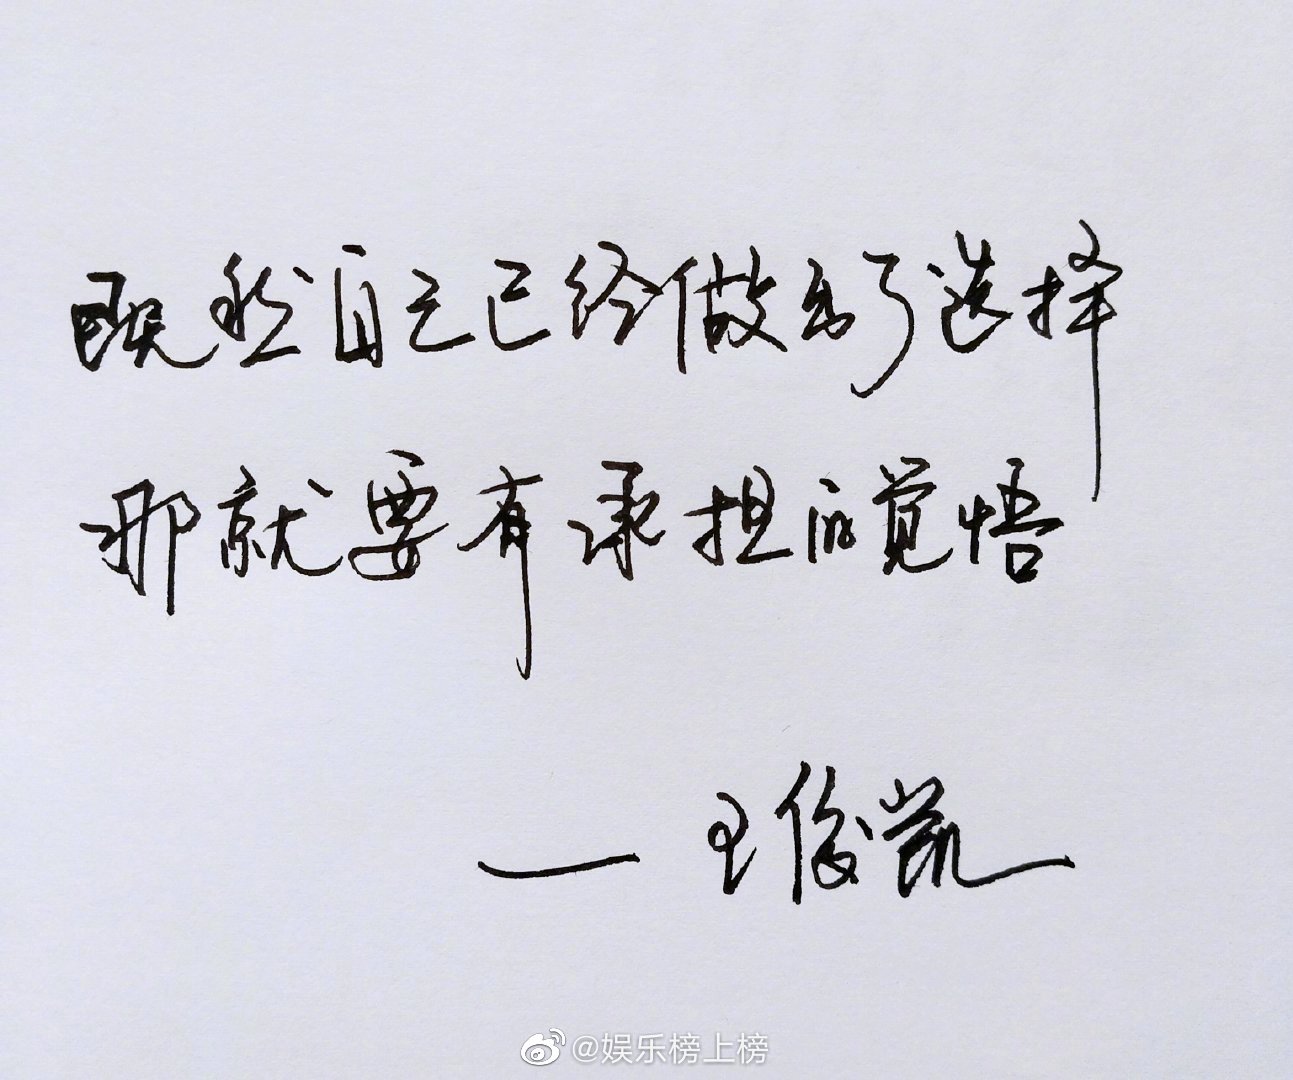 既然自己已经做出了选择
那就要有承担的觉悟
—— 王俊凯
@娱乐榜上榜